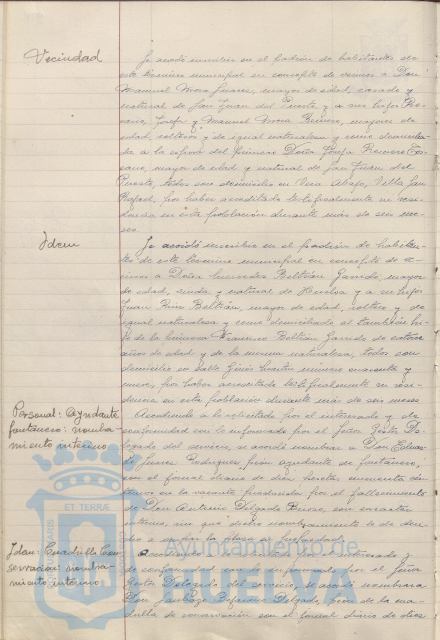 Vecindad
Se acordó inscribir en el padrón de habitantes de
este término municipal en concepto de vecinos a Don
Manuel Mora Suarez, mayor de edad, casado y
natural de San Juan del Puerto y a sus hijos
Josefa y Manuel Mora Romero, mayores de
edad, solteros y de igual naturaleza y como
a la esposa del primero Doña Josefa Romero
mayor de edad y natural de San Juan del
Puerto, todos con domicilio en Vera Abajo, Villa San
Rafael, por haber acreditado testificalmente su
en esta población durante más de seis me-
ses.
Idem
Se acordó inscribir en el padrón de habitan-
tes de este término municipal en concepto de ve-
cinos a Doña Beltrán Garrido, mayor
de edad, viuda y natural de Huelva y a su hijo
Juan Beltrán, mayor de edad, soltero y de
igual naturaleza y como domiciliado al también hi-
jo de la Francisco Beltrán Garrido de catorce
años de edad y de la misma naturaleza, todos con
domicilio en calle Ginés Martín número cuarenta y
nueve, por haber acreditado testificalmente su resi-
dencia en esta población durante más de seis meses.
Personal: Ayudante
fontanero: nombra-
miento interino
Accediendo a lo solicitado por el interesado y de
conformidad con lo informado por el Señor Gestor De-
legado del servicio, se acordó nombrar a Don
Suarez Rodriguez, peón ayudante de fontanero,
con el jornal diario de diez pesetas cincuenta cén-
timos en la vacante producida por el fallecimiento
de Don Antonio Delgado con carácter
interino, sin que dicho nombramiento le dé dere-
cho a
Idem: Cuadrilla Con-
servación: nombra-
miento interino
Accediendo a lo solicitado por el interesado y
de conformidad con lo informado por el Señor
Gestor Delegado del servicio, se acordó nombrar a
Don Delgado, peón de la cua-
drilla de conservación con el jornal diario de
ET TERRÆ
Ayuntamiento de
HUELVA